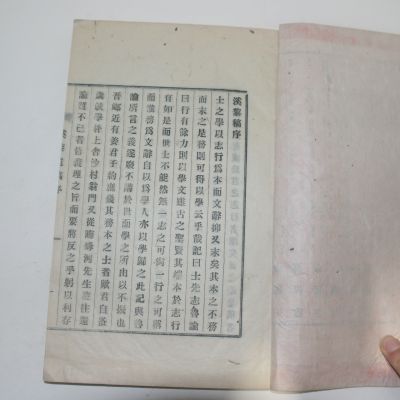 溪黎稿序
士之學以志行爲本而文辭抑又末矣其本之不務
而末之是務則可得以學云乎哉記曰士先志魯論
曰行有餘力則以學文雖古之聖賢其端本於志行
有如是而世士不能然無一志之可尙一行之可稱
而漢務爲文辭自以爲學人亦以學歸之此記與魯
論所言之義遂廢不講於世而學之所由以不振也
吾鄕近有姜君子昀漁護其務本之士者歟君自
歲就學於上舍沙村翁門又從
先生遊往還
論討不已者皆義理之旨而要將反之乎躬以利存